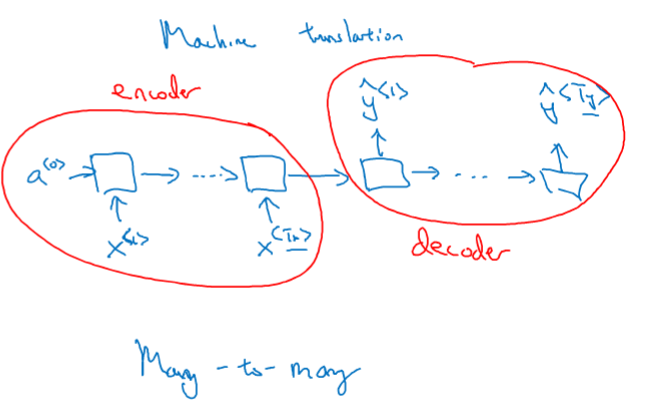 Machine translartion
encoder
ŷ<1> ŷ<Ty>
a<0>
x<1> x<Tx>
decoder
Many-to-many